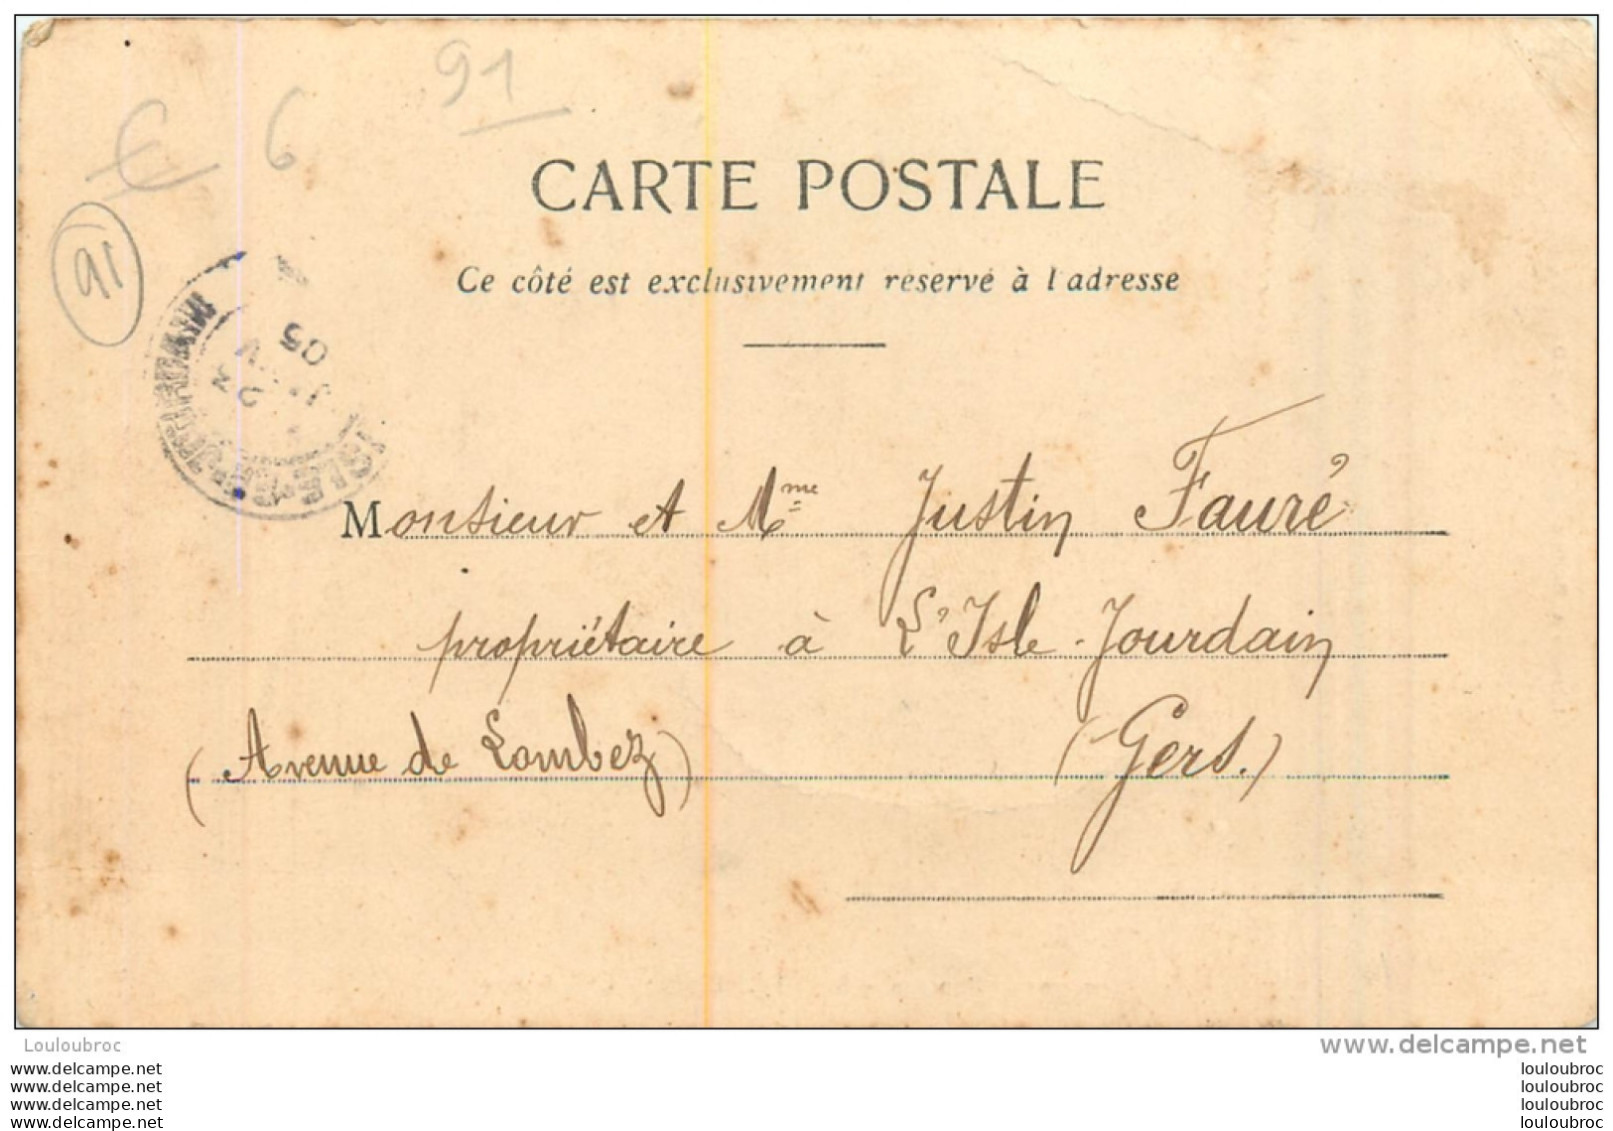 91
€ 6
91
CARTE POSTALE
Ce côté est exclusivement réservé à l'adresse
05
Monsieur et Mme Justin Fauré
propriétaire à L'Isle-Jourdain
(Avenue de Lombez) (Gers.)
Louloubroc
www.delcampe.net
www.delcampe.net
www.delcampe.net
www.delcampe.net
www.delcampe.net
louloubroc
louloubroc
louloubroc
louloubroc